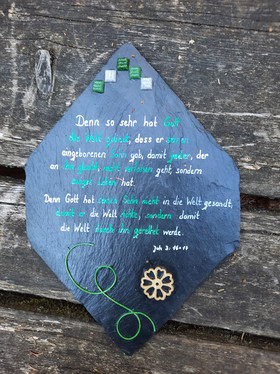 Denn so sehr hat Gott
die Welt geliebt, dass er seinen
eingeborenen Sohn gab, damit jeder, der
an ihn glaubt, nicht verloren geht, sondern
ewiges Leben hat.
Denn Gott hat seinen Sohn nicht in die Welt gesandt,
damit er die Welt richte, sondern damit
die Welt durch ihn gerettet werde.
Joh 3: 16-17